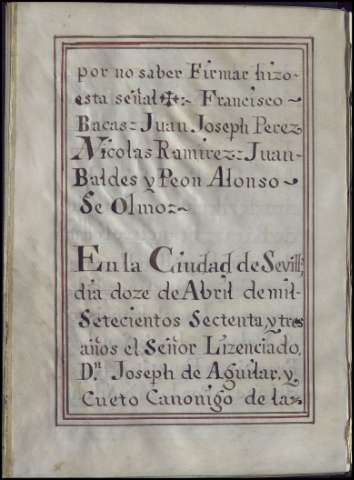 por no saber Firmar hizo-
esta señal ✠:~ Francisco~
Bacas= Juan Joseph Perez
Nicolas Ramirez= Juan-
Baldes y Peon Alonso~
Se Olmo=~
En la Ciudad de Sevill;
dia doze de Abril de mil-
Setecientos Sectenta, y tres
años el Señor Lizenciado,
D.n Joseph de Aguilar, y
Cueto Canonigo de la=